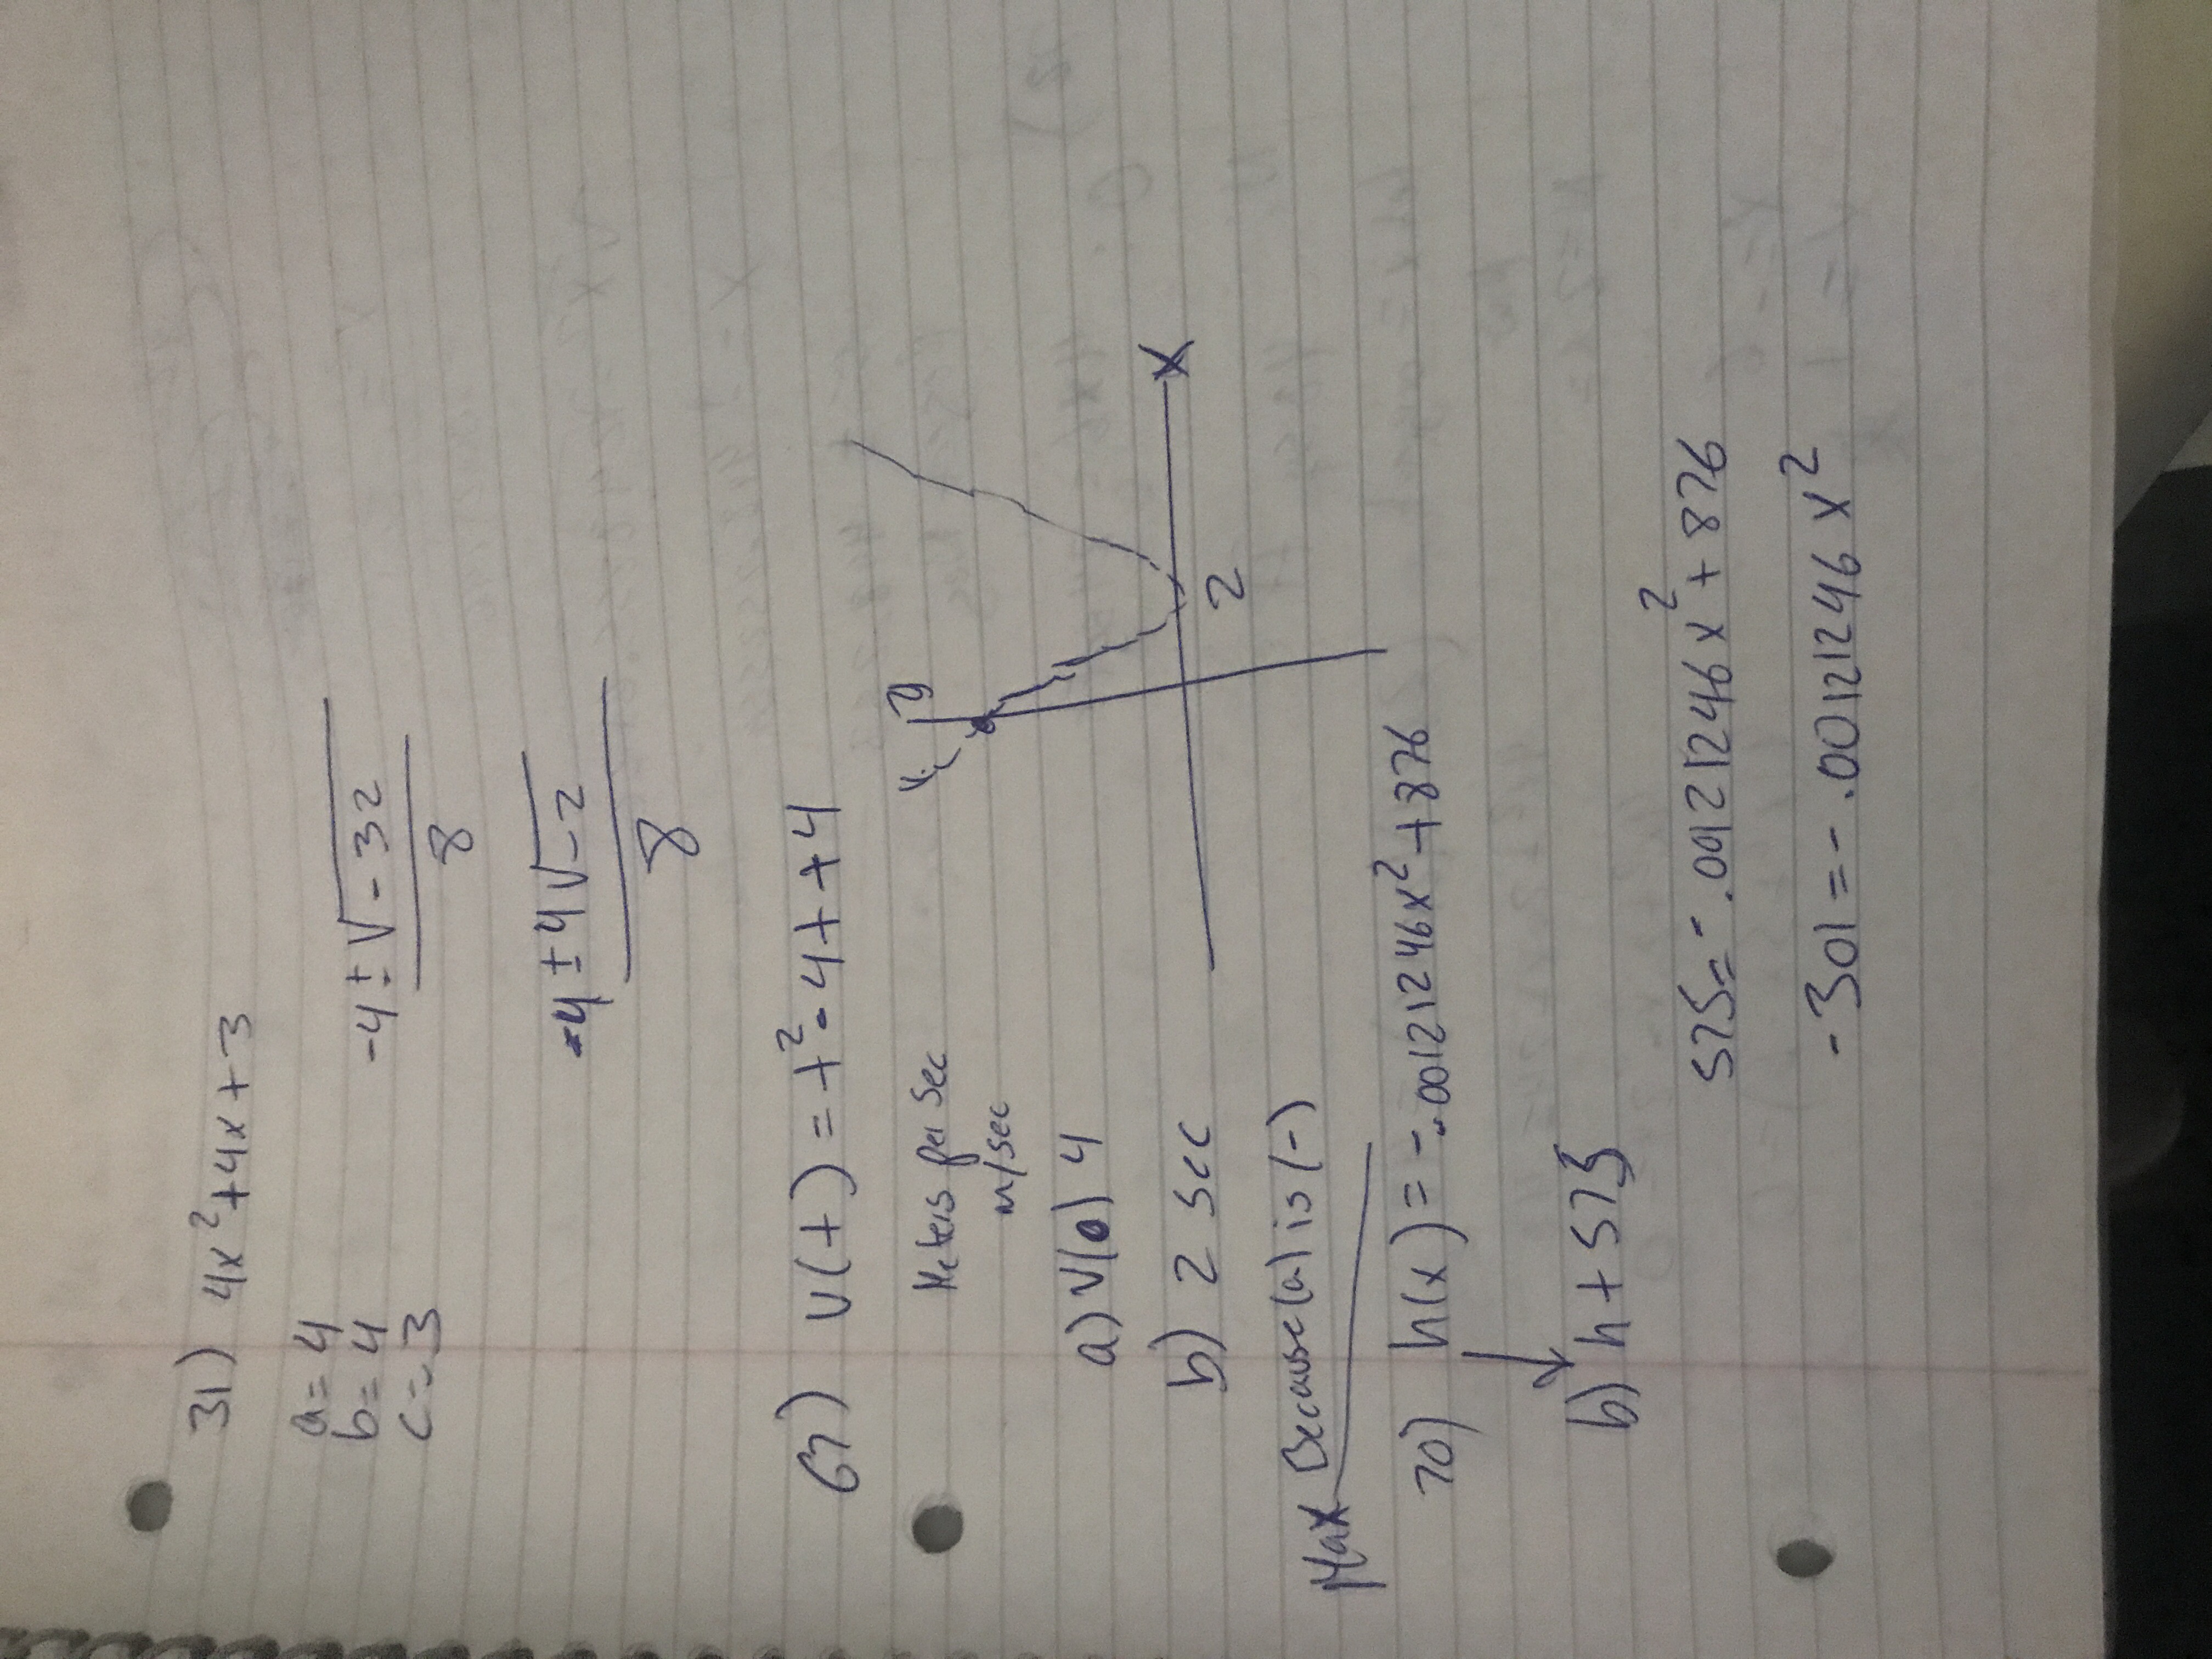 31) 4x²+4x+3
a=4
b=4
c=3
-4±√-32
8
-4±4√-2
8
67) v(t)=t²-4t+4
Meters per Sec
m/sec
y
a) v(0) 4
x
b) 2 sec
2
Max Because (a) is (-)
70) h(x)=-.00121246x²+876
b) h+575
575=-.00121246x²+876
-301=-.00121246x²